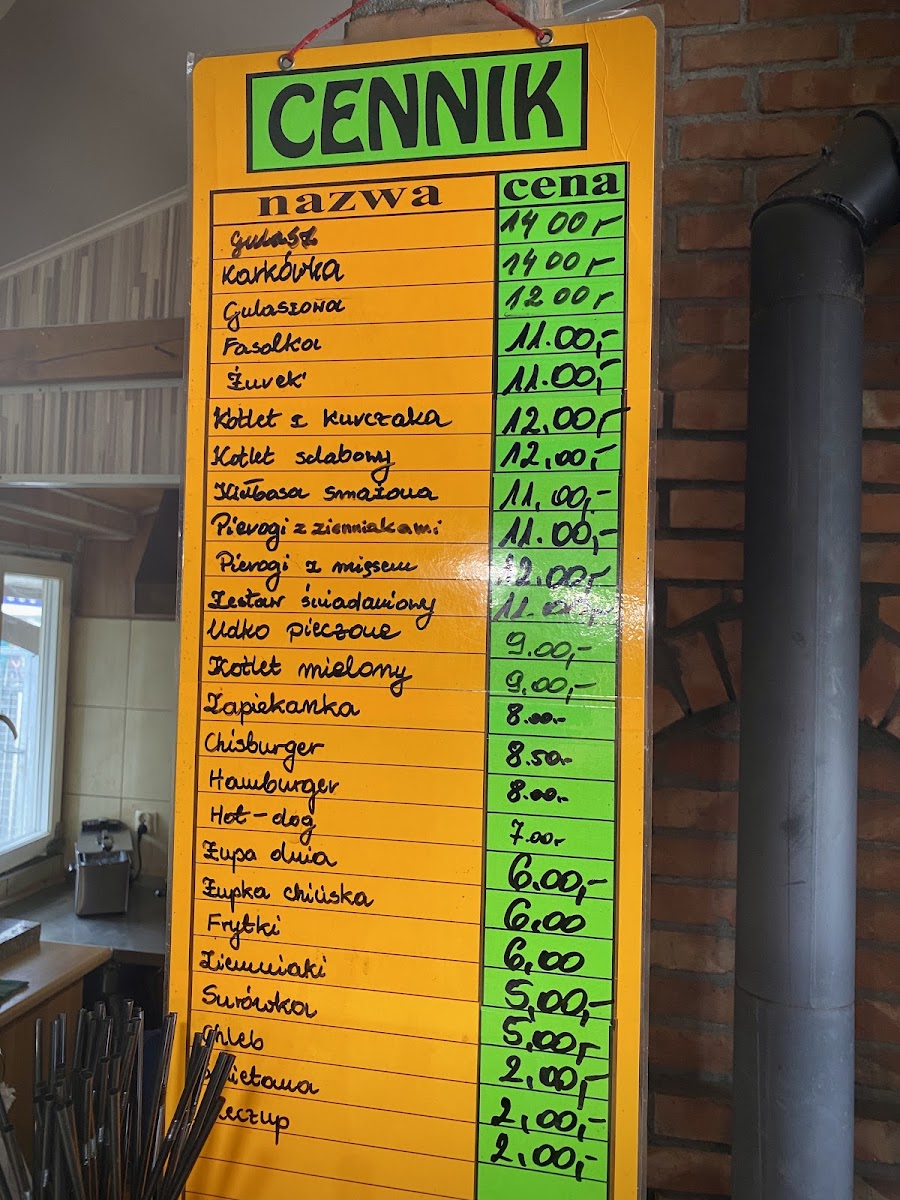 CENNIK
nazwa cena
Gulasz 14 00,-
Karkówka 14 00,-
Gulaszowa 12 00,-
Fasolka 11.00,-
Żurek 11.00,-
Kotlet z kurczaka 12,00,-
Kotlet schabowy 12,00,-
Kiełbasa smażona 11,00,-
Pierogi z zienniakami 11.00,-
Pierogi z mięsem 12.00,-
Zestaw śniadaniowy 11.00,-
Udko pieczone 9.00,-
Kotlet mielony 9,00,-
Zapiekanka 8.00,-
Chisburger 8.50,-
Hamburger 8.00,-
Hot-dog 7.00,-
Zupa dnia 6.00,-
Zupka chińska 6.00
Frytki 6,00
Ziemniaki 5,00,-
Surówka 5,00,-
Chleb 2,00,-
Śmietana 2,00,-
Keczup 2,00,-